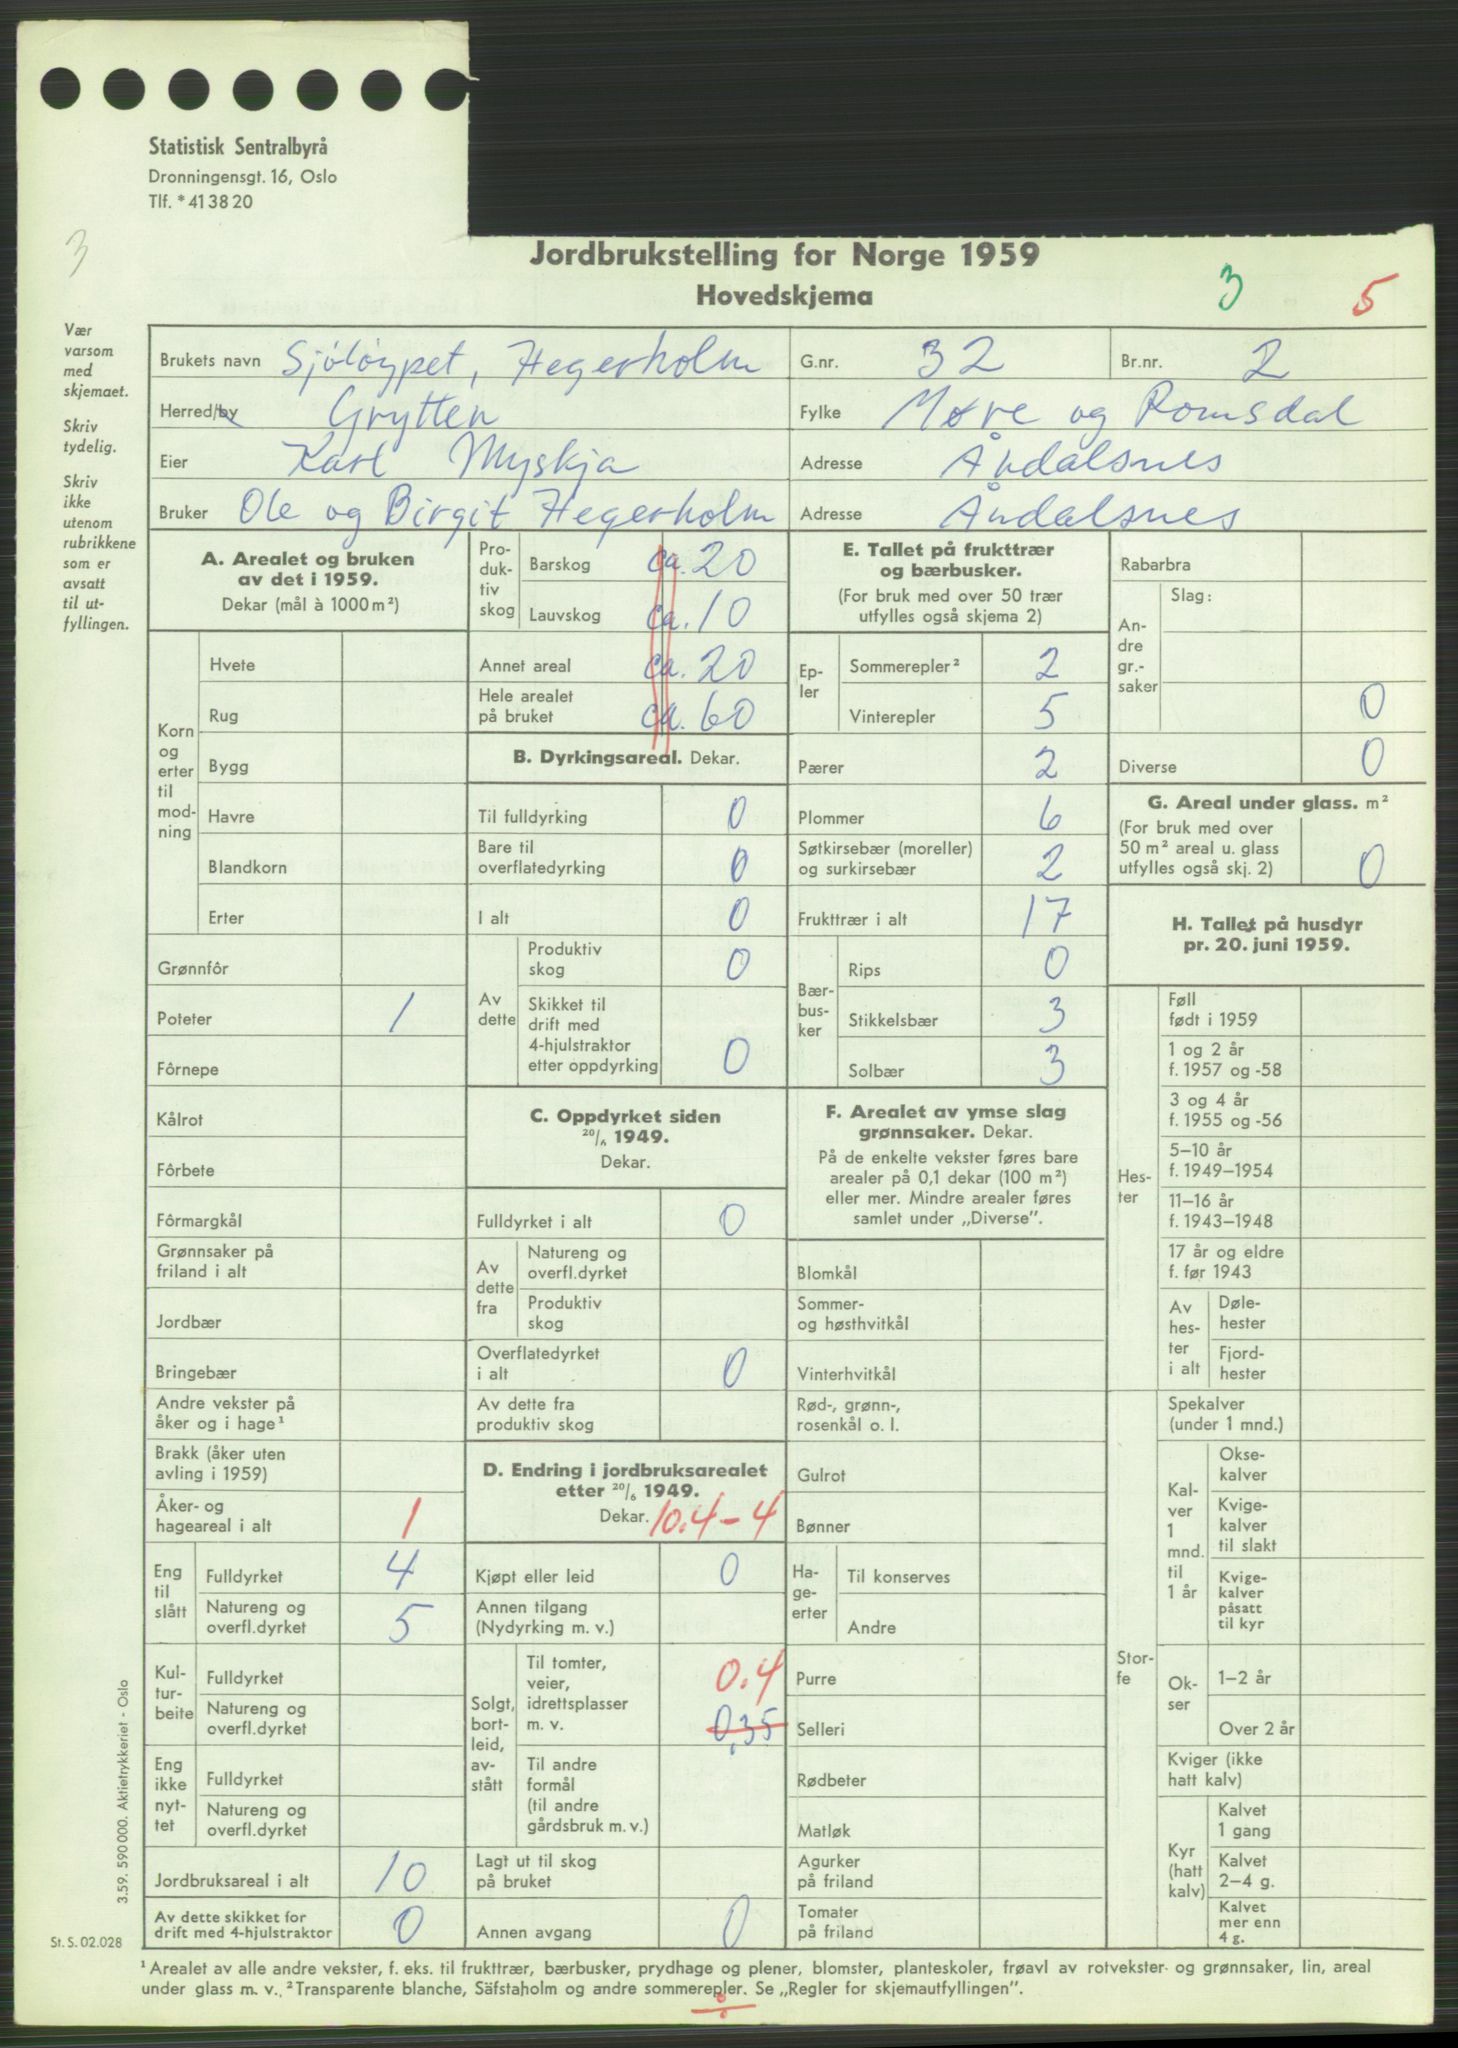 Statistisk Sentralbyrå
Dronningensgt. 16, Oslo
Tlf. *41 38 20
3
Jordbrukstelling for Norge 1959
Hovedskjema
3 5
Vær varsom med skjemaet.
Skriv tydelig.
Skriv ikke utenom rubrikkene som er avsatt til ut-fyllingen.
Brukets navn Sjöløypet, Hegerholm G.nr. 32 Br.nr. 2
Herred/by Grytten Fylke Møre og Romsdal
Eier Karl Myskja Adresse Åndalsnes
Bruker Ole og Birgit Hegerholm Adresse Åndalsnes
A. Arealet og bruken av det i 1959.
Dekar (mål à 1000 m²)
Korn og erter til mod-ning
Hvete
Rug
Bygg
Havre
Blandkorn
Erter
Grønnfôr
Poteter 1
Fôrnepe
Kålrot
Fôrbete
Fôrmargkål
Grønnsaker på friland i alt
Jordbær
Bringebær
Andre vekster på åker og i hage¹
Brakk (åker uten avling i 1959)
Åker- og hageareal i alt 1
Eng til slått
Fulldyrket 4
Natureng og overfl.dyrket 5
Kul-tur-beite
Fulldyrket
Natureng og overfl.dyrket
Eng ikke nyt-tet
Fulldyrket
Natureng og overfl.dyrket
Jordbruksareal i alt 10
Av dette skikket for drift med 4-hjulstraktor 0
Pro-duk-tiv skog
Barskog ca. 20
Lauvskog ca. 10
Annet areal ca. 20
Hele arealet på bruket ca. 60
B. Dyrkingsareal. Dekar.
Til fulldyrking 0
Bare til overflatedyrking 0
I alt 0
Av dette
Produktiv skog 0
Skikket til drift med 4-hjulstraktor etter oppdyrking 0
C. Oppdyrket siden 20/6 1949.
Dekar.
Fulldyrket i alt 0
Av dette fra
Natureng og overfl.dyrket
Produktiv skog
Overflatedyrket i alt 0
Av dette fra produktiv skog
D. Endring i jordbruksarealet etter 20/6 1949.
Dekar. 10.4-4
Kjøpt eller leid 0
Annen tilgang (Nydyrking m. v.)
Solgt, bort-leid, av-stått
Til tomter, veier, idrettsplasser m. v. 0.4
0,35
Til andre formål (til andre gårdsbruk m. v.)
Lagt ut til skog på bruket
Annen avgang 0
E. Tallet på frukttrær og bærbusker.
(For bruk med over 50 trær utfylles også skjema 2)
Ep-ler
Sommerepler² 2
Vinterepler 5
Pærer 2
Plommer 6
Søtkirsebær (moreller) og surkirsebær 2
Frukttrær i alt 17
Bær-bus-ker
Rips 0
Stikkelsbær 3
Solbær 3
F. Arealet av ymse slag grønnsaker. Dekar.
På de enkelte vekster føres bare arealer på 0,1 dekar (100 m²) eller mer. Mindre arealer føres samlet under „Diverse".
Blomkål
Sommer- og høsthvitkål
Vinterhvitkål
Rød-, grønn-, rosenkål o. l.
Gulrot
Bønner
Ha-ge-erter
Til konserves
Andre
Purre
Selleri
Rødbeter
Matløk
Agurker på friland
Tomater på friland
Rabarbra
An-dre gr.-saker
Slag:
0
Diverse 0
G. Areal under glass. m²
(For bruk med over 50 m² areal u. glass utfylles også skj. 2) 0
H. Tallet på husdyr pr. 20. juni 1959.
Hes-ter
Føll født i 1959
1 og 2 år f. 1957 og -58
3 og 4 år f. 1955 og -56
5–10 år f. 1949–1954
11–16 år f. 1943–1948
17 år og eldre f. før 1943
Av hes-ter i alt
Døle-hester
Fjord-hester
Stor-fe
Spekalver (under 1 mnd.)
Kal-ver 1 mnd. til 1 år
Okse-kalver
Kvige-kalver til slakt
Kvige-kalver påsatt til kyr
Ok-ser
1–2 år
Over 2 år
Kviger (ikke hatt kalv)
Kyr (hatt kalv)
Kalvet 1 gang
Kalvet 2–4 g.
Kalvet mer enn 4 g.
3.59. 590 000. Aktietrykkeriet - Oslo
St. S. 02.028
¹ Arealet av alle andre vekster, f. eks. til frukttrær, bærbusker, prydhage og plener, blomster, planteskoler, frøavl av rotvekster og grønnsaker, lin, areal
under glass m. v., ² Transparente blanche, Säfstaholm og andre sommerepler. Se „Regler for skjemautfyllingen".